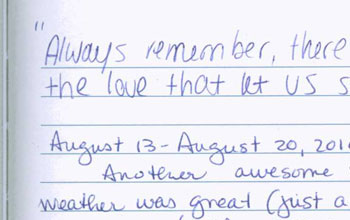 "Always remember, there
the love that let us s
August 13 - August 20, 201
Another awesome
weather was great (just a